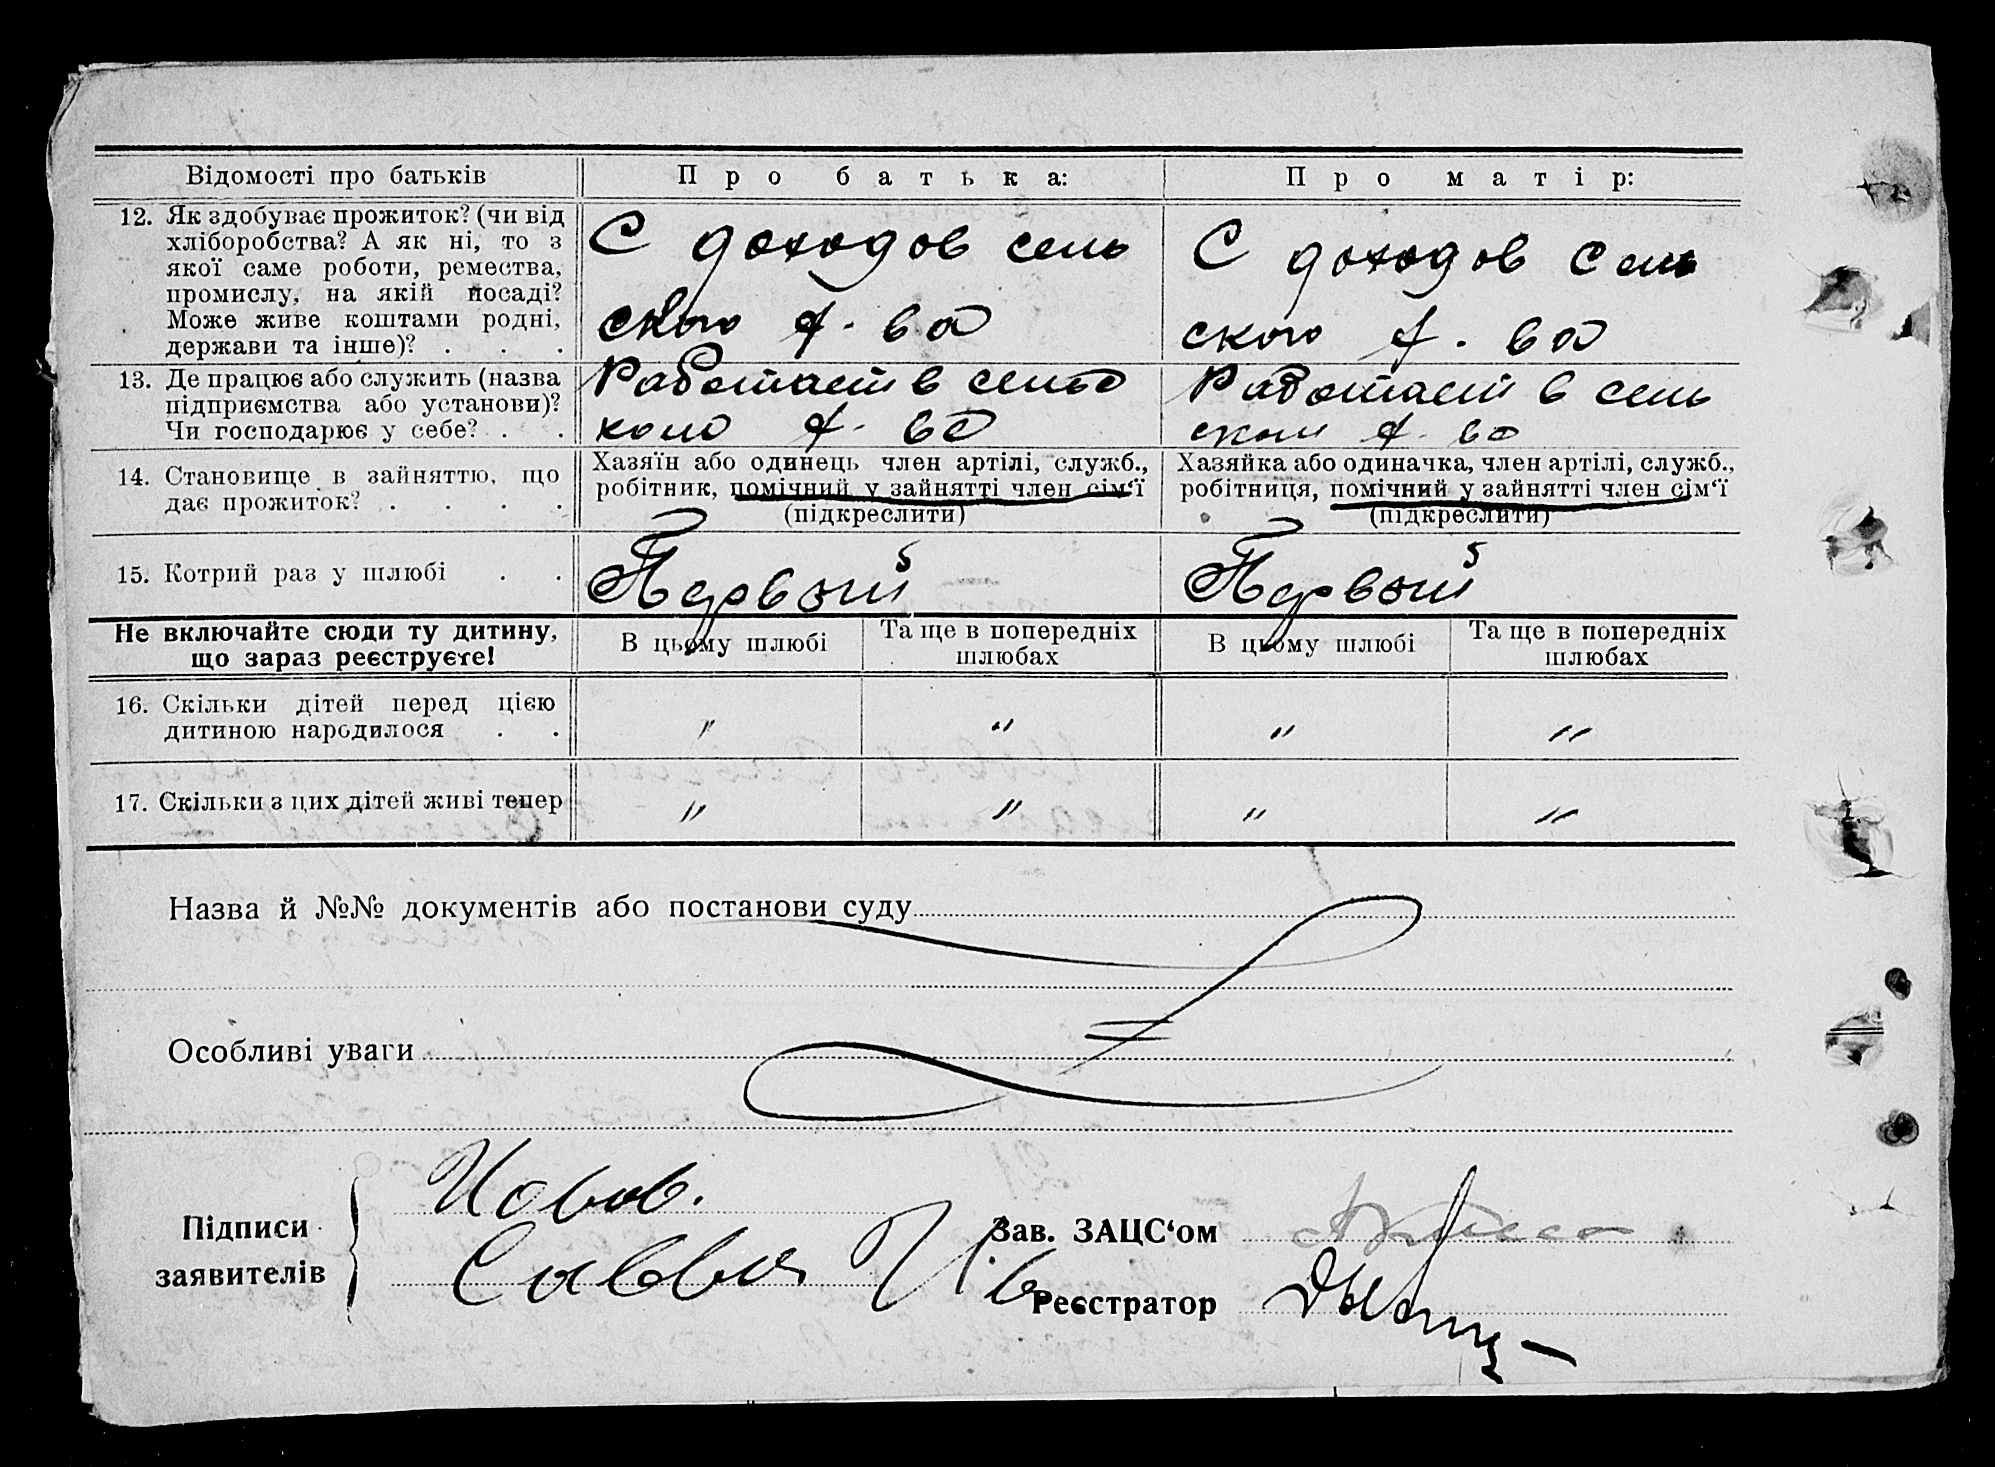 Відомості про батьків
Про батька:
Про матір:
12. Як здобуває прожиток? (чи від
хліборобства? А як ні, то з
якої саме роботи, ремества,
промислу, на якій посаді?
Може живе коштами родні,
держави та інше)? . . .
С доходов сель
ского х-ва
С доходов сель
ского х-ва
13. Де працює або служить (назва
підприємства або установи)?
Чи господарює у себе? . .
Работает в сельс
ком х-ве
Работает в сель
ском х-ве
14. Становище в зайняттю, що
дає прожиток? . . . .
Хазяїн або одинець член артілі, служб.,
робітник, помічний у зайнятті член сім‘ї
(підкреслити)
Хазяйка або одиначка, член артілі, служб.,
робітниця, помічний у зайнятті член сім‘ї
(підкреслити)
15. Котрий раз у шлюбі . .
Первый
Первый
Не включайте сюди ту дитину,
що зараз реєструєте!
В цьому шлюбі
Та ще в попередніх
шлюбах
В цьому шлюбі
Та ще в попередніх
шлюбах
16. Скільки дітей перед цією
дитиною народилося . .
" " " "
17. Скільки з цих дітей живі тепер
" " " "
Назва й №№ документів або постанови суду
Особливі уваги
Підписи
заявителів
Савва
Зав. ЗАЦС‘ом
Реєстратор